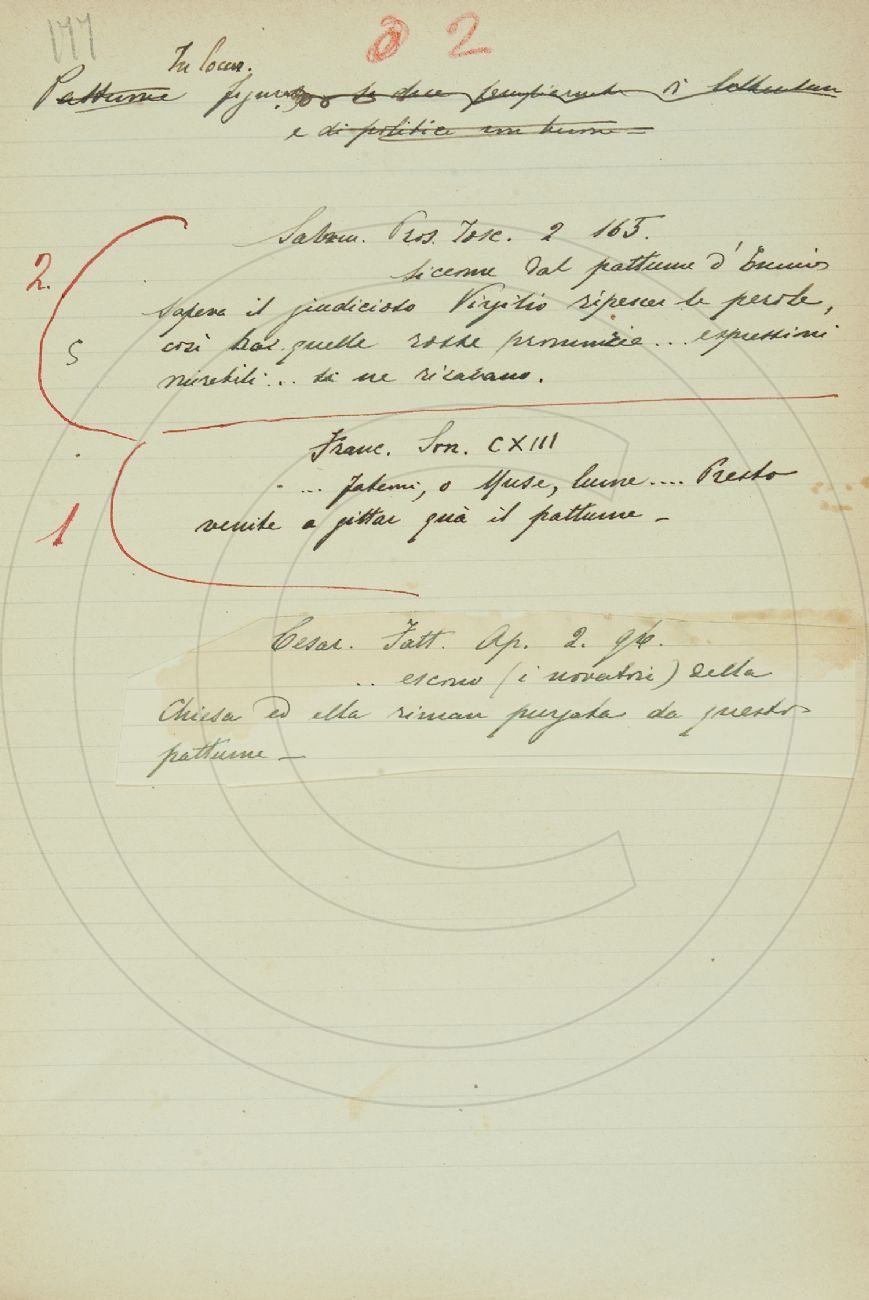 177
2
In locuz.
Pattume figur. si dice
e di politica non buone =
Salvin. Pros. Tosc. 2 165.
siccome dal pattume d'Ennio
sapeva il giudicioso Virgilio ripescar le perole,
così dar quelle rozze pronunzie... espressioni
mirabili... si ne ricavano.
2.
S
Franc. Son. CXIII
... Fatemi, o Muse, lume.... Presto
venite a gittar quà il pattume -
1
Cesar. Fatt. Ap. 2. 96.
.. escono (i novatori) della
Chiesa ed ella riman purgata da questo
pattume -